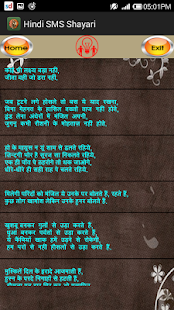 05:01PM
Hindi SMS Shayari
Home
Exit
कोई भी लक्ष्य बड़ा नहीं,
जीता वही जो डरा नहीं.
जब टूटने लगे होसले तो बस ये याद रखना,
बिना मेहनत के हासिल तख्तो ताज नहीं होते,
ढूंड लेना अंधेरों में मंजिल अपनी,
जुगनू कभी रौशनी के मोहताज़ नहीं होते.
हो के मायूस न यू शाम से ढलते रहिये,
ज़िन्दगी भोर है सूरज सा निकलते रहिये,
एक ही पाँव पे ठहरोगे तो थक जाओगे,
धीरे-धीरे ही सही राह पे चलते रहिये.
मिलेगी परिंदों को मंजिल ये उनके पर बोलते हैं,
रहते हैं कुछ लोग खामोश लेकिन उनके हुनर बोलते हैं.
खुशबू बनकर गुलों से उड़ा करते हैं,
धुआं बनकर पर्वतों से उड़ा करते हैं,
ये कैंचियाँ खाक हमें उड़ने से रोकेगी,
हम परों से नहीं होसलों से उड़ा करते हैं.
मुश्किलें दिल के इरादे आजमाती हैं,
स्वप्न के परदे निगाहों से हटाती हैं,